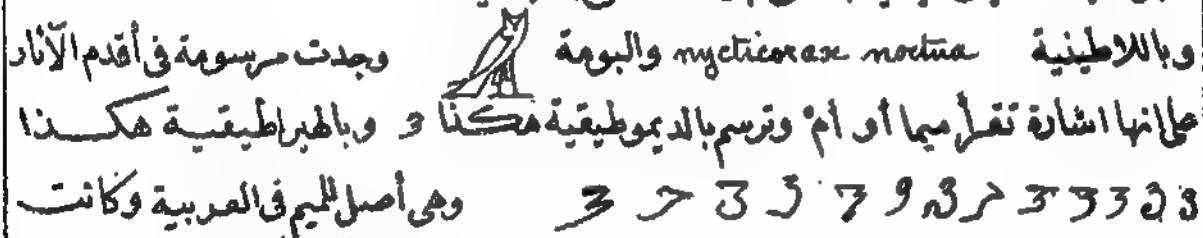 وباللاطينية nycticorax noctua والبومة وجدت مرسومة فى أقدم الآثار
على انها اشارة تقرأ ميما أو أم وترسم بالديموطيقية هكذا 3 وبالهيراطيقية هكذا
وهى أصل للميم فى العربية وكانت